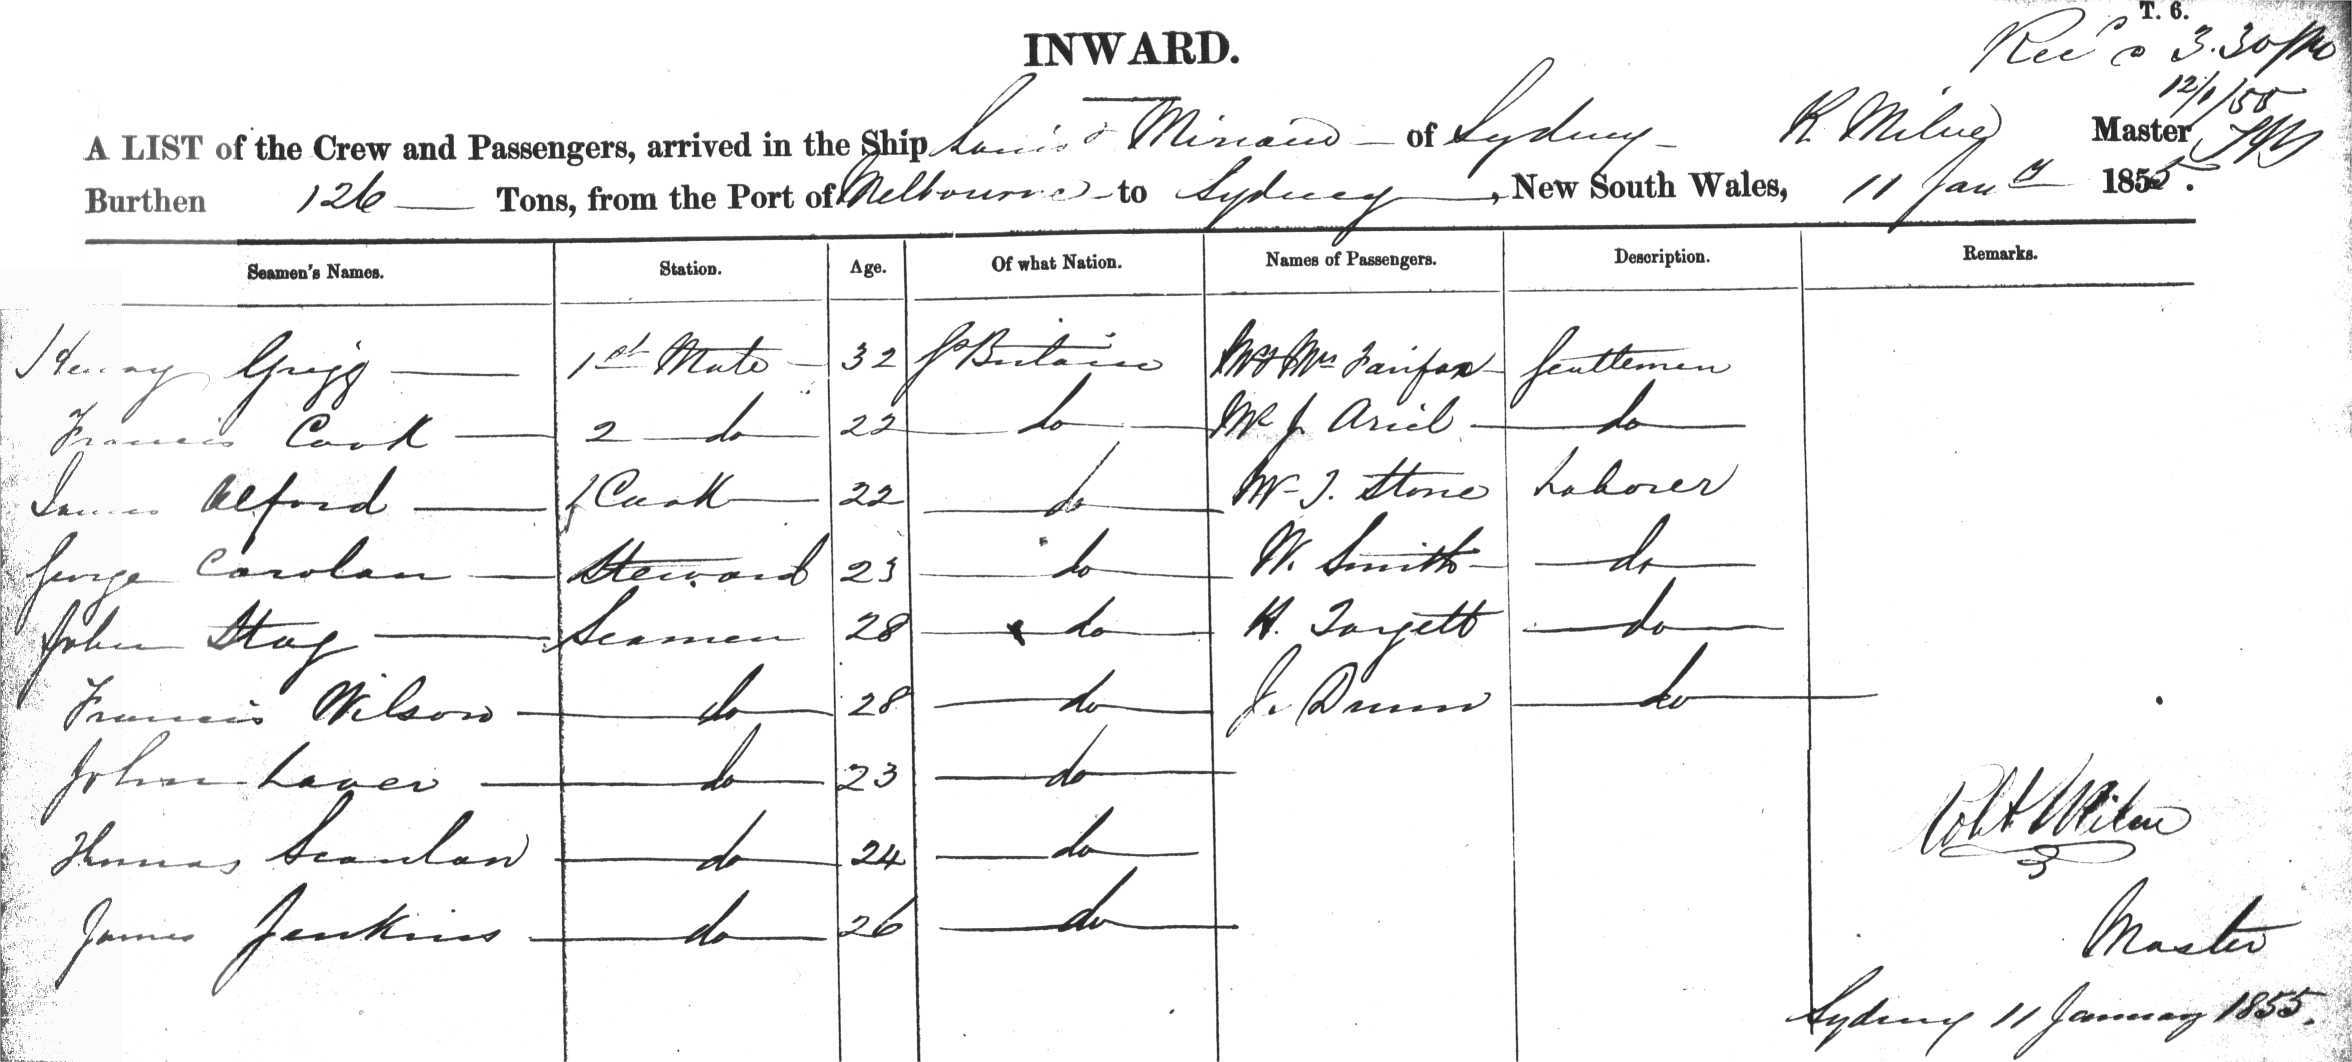 T. 6.
INWARD.
Rec'd 3.30 pm
12/1/55
A LIST of the Crew and Passengers, arrived in the Ship Louis & Miriam of Sydney R Milne Master
Burthen 126 Tons, from the Port of Melbourne to Sydney, New South Wales, 11 Jany 1855.
Seamen's Names. Station. Age. Of what Nation. Names of Passengers. Description. Remarks.
Henry Grigg 1st Mate 32 Gt Britain Mr & Mrs Fairfax Gentlemen
Francis Cook 2 do 22 do Mr J. Ariel do
James Alford Cook 22 do Mr J. Stone Laborer
George Carolan Steward 23 do W. Smith do
John Stag Seamen 28 do H. Targett do
Francis Wilson do 28 do J. Dunn do
John Laver do 23 do
Thomas Scanlan do 24 do
Robt Milne
James Jenkins do 26 do
Master
Sydney 11 January 1855.